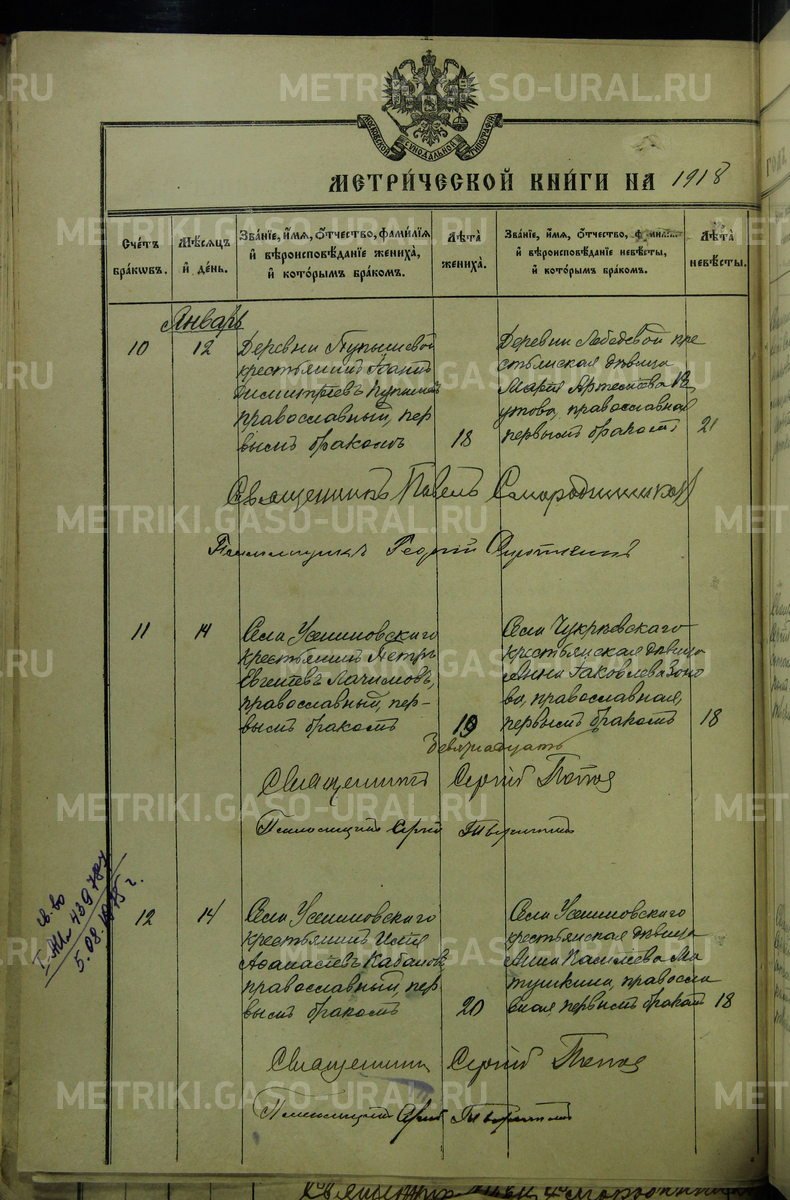 МОСКОВСКОЙ СѴНОДАЛЬНОЙ ТИПОГРАФІИ
МЕТРИ́ЧЕСКОЙ КНИ́ГИ НА 1918
Сче́тъ бра́кѡвъ.
Мѣ́сяцъ и҆ де́нь.
Зва́нїе, и҆́мѧ, ѻ҆́тчество, фами́лїѧ и҆ вѣроисповѣ́данїе жениха̀, и҆ кото́рымъ бра́комъ.
Лѣ́та жениха̀.
Зва́нїе, и҆́мѧ, ѻ҆́тчество, фами́лїѧ и҆ вѣроисповѣ́данїе невѣ́сты, и҆ кото́рымъ бра́комъ.
Лѣ́та невѣ́сты.
Январь
10
12
Деревни Пупышевой
крестьянинъ Іоаннъ
Димитріевъ Пупышевъ
православный, пер
вымъ бракомъ
18
Деревни Лебедевой кре
стьянская дѣвица
Марія
православная
первымъ бракомъ
21
Священникъ Павелъ Смородинниковъ
Псаломщикъ Георгій
11
14
Села Усениновскаго
крестьянинъ Петръ
Евгеніевъ
православный, пер-
вымъ бракомъ
19
Девятнадцать
Села Чукреевскаго
крестьянская дѣвица
Анна Іаковлева Зоно
ва, православная,
первымъ бракомъ
18
Священникъ Сергій Попов
Псаломщикъ Сергій
св-во
I АИ № 439787
5.08.1975 г.
12
14
Села Усениновскаго
крестьянинъ Илія
Аѳанасіевъ Кабановъ
православный, пер
вымъ бракомъ
20
Села Усениновскаго
крестьянская дѣвица
Анна Василіева Ма
тушкина, правосла
вная, первымъ бракомъ
18
Священникъ Сергій Попов
Псаломщикъ Сергій
METRIKI.GASO-URAL.RU